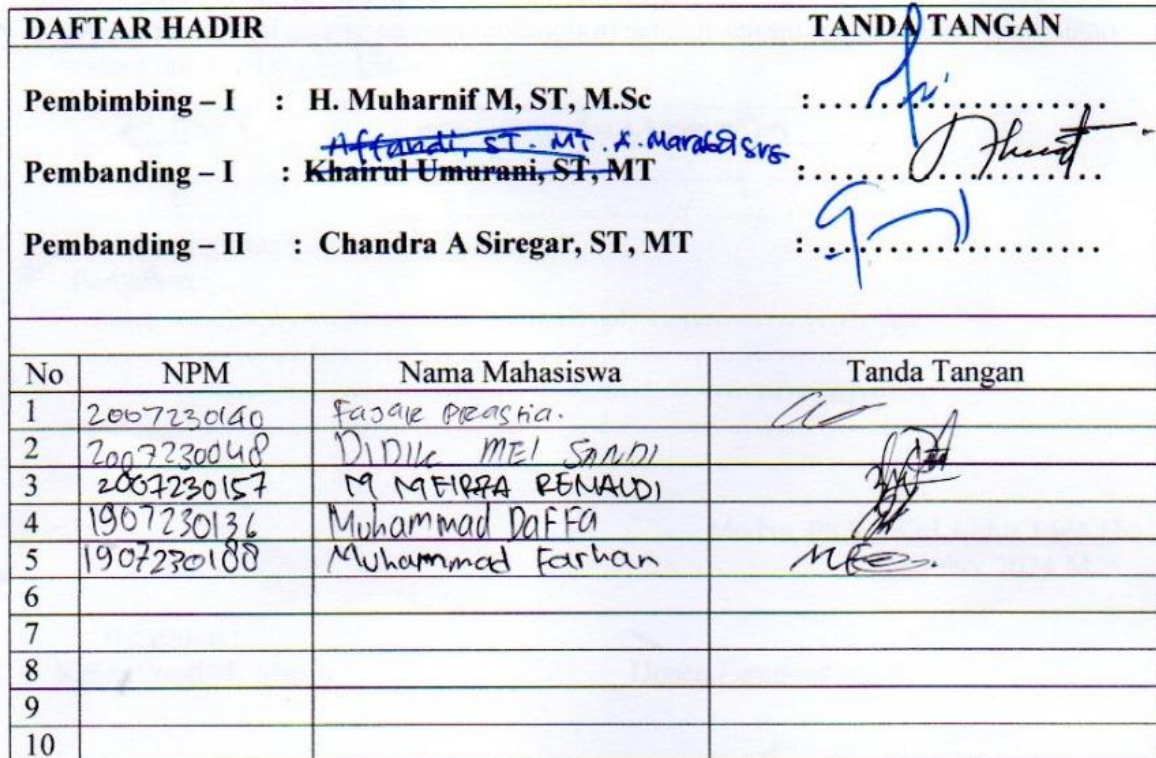 DAFTAR HADIR TANDA TANGAN
Pembimbing – I : H. Muharnif M, ST, M.Sc :....................
Affandi, ST. MT. A. Marabdi srg
Pembanding – I : Khairul Umurani, ST, MT :....................
Pembanding – II : Chandra A Siregar, ST, MT :....................
No NPM Nama Mahasiswa Tanda Tangan
1 2007230140 Fajar Prastia.
2 2007230048 DIDIK MEI SANDI
3 2007230157 M MEIRZA RENALDI
4 1907230136 Muhammad DaFFa
5 1907230188 Muhammad Farhan
6
7
8
9
10